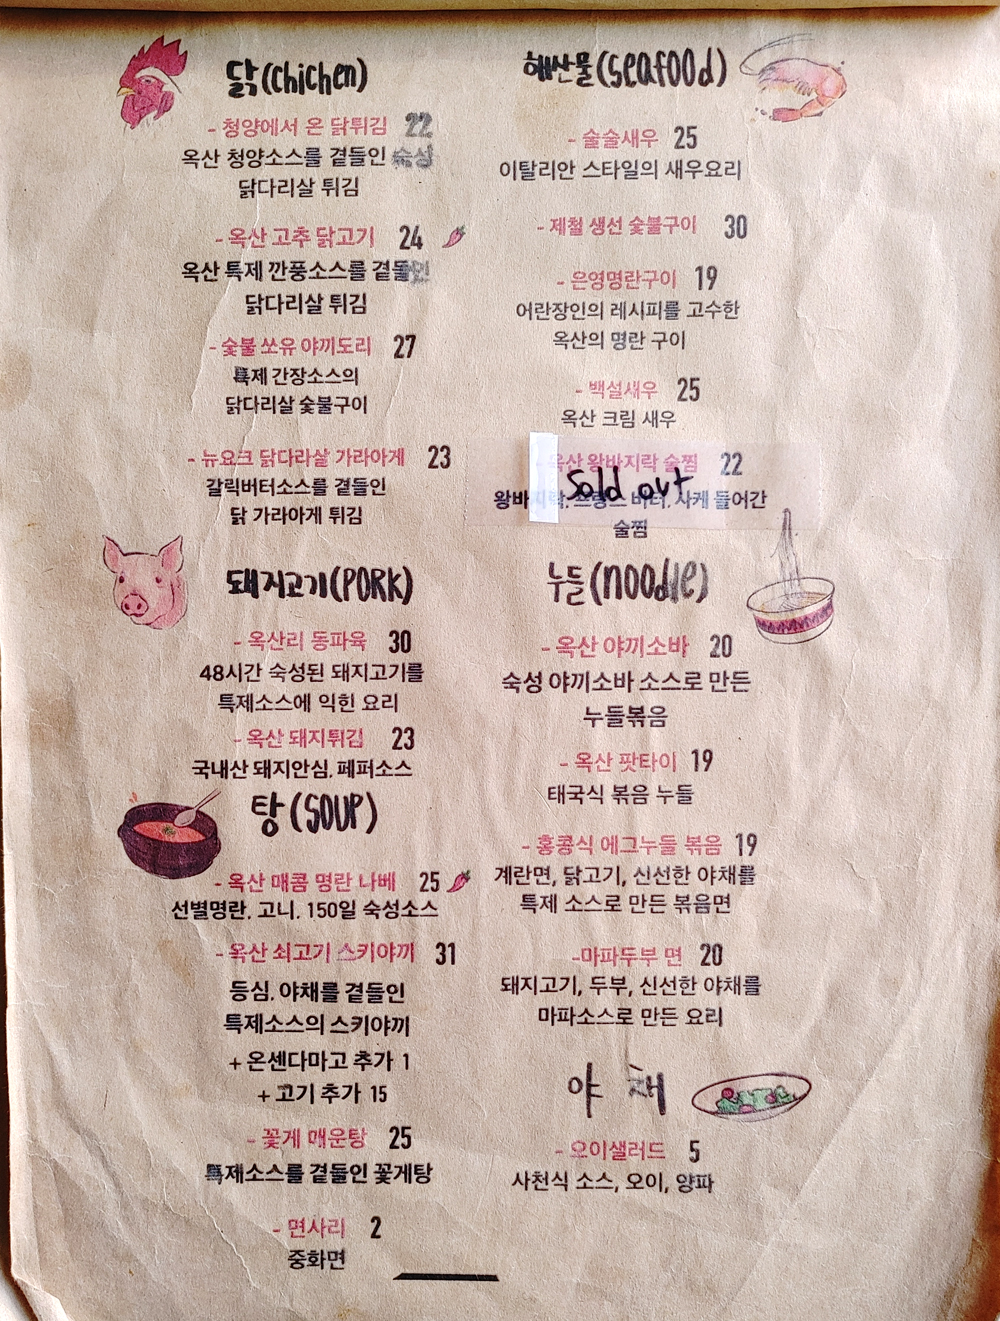 닭(chichen)
- 청양에서 온 닭튀김 22
옥산 청양소스를 곁들인 숙성
닭다리살 튀김
- 옥산 고추 닭고기 24
옥산 특제 깐풍소스를 곁들인
닭다리살 튀김
- 숯불 쏘유 야끼도리 27
특제 간장소스의
닭다리살 숯불구이
- 뉴요크 닭다라살 가라아게 23
갈릭버터소스를 곁들인
닭 가라아게 튀김
돼지고기(PORK)
- 옥산리 동파육 30
48시간 숙성된 돼지고기를
특제소스에 익힌 요리
- 옥산 돼지튀김 23
국내산 돼지안심. 페퍼소스
탕(SOUP)
- 옥산 매콤 명란 나베 25
선별명란. 고니. 150일 숙성소스
- 옥산 쇠고기 스키야끼 31
등심. 야채를 곁들인
특제소스의 스키야끼
+ 온센다마고 추가 1
+ 고기 추가 15
- 꽃게 매운탕 25
특제소스를 곁들인 꽃게탕
- 면사리 2
중화면
해산물(seafood)
- 술술새우 25
이탈리안 스타일의 새우요리
- 제철 생선 숯불구이 30
- 은영명란구이 19
어란장인의 레시피를 고수한
옥산의 명란 구이
- 백설새우 25
옥산 크림 새우
- 옥산 왕바지락 술찜 22
Sold out
왕바지락. 프랑스 버터. 사케 들어간
술찜
누들(noodle)
- 옥산 야끼소바 20
숙성 야끼소바 소스로 만든
누들볶음
- 옥산 팟타이 19
태국식 볶음 누들
- 홍콩식 에그누들 볶음 19
계란면, 닭고기, 신선한 야채를
특제 소스로 만든 볶음면
-마파두부 면 20
돼지고기, 두부, 신선한 야채를
마파소스로 만든 요리
야 채
- 오이샐러드 5
사천식 소스, 오이, 양파